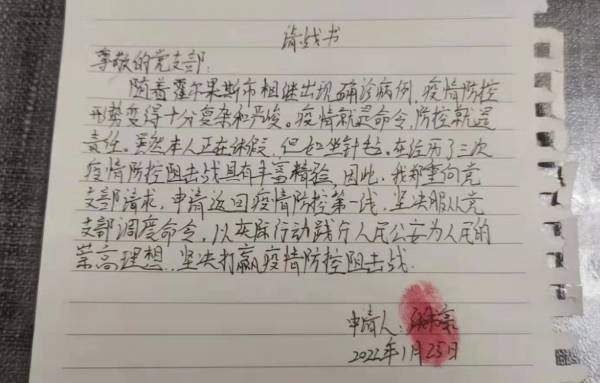 请战书
尊敬的党支部:
随着霍尔果斯市相继出现确诊病例,疫情防控
形势变得十分复杂和严峻。疫情就是命令,防控就是
责任。虽然本人正在休假,但如坐针毡。在经历了三次
疫情防控阻击战具有丰富经验,因此,我郑重向党
支部请求,申请返回疫情防控第一线,坚决服从党
支部调度命令,以实际行动践行人民公安为人民的
崇高理想,坚决打赢疫情防控阻击战.
申请人:
2022年1月25日